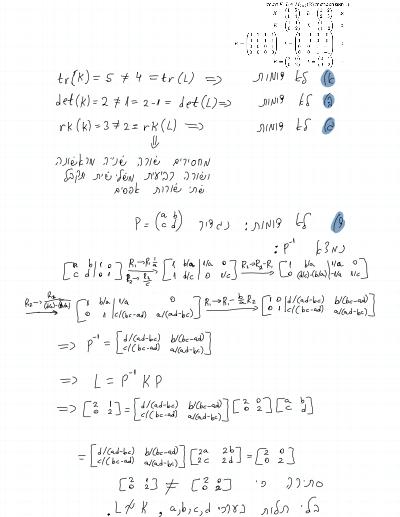 tr(K) = 5 ≠ 4 = tr(L) => לא דומות
det(K) = 2 ≠ 1 = 2-1 = det(L) => לא דומות
rk(K) = 3 ≠ 2 = rk(L) => לא דומות
⇓
מחסירים שורה שנייה מראשונה
ושורה רביעית משלישית תקבל
שתי שורות אפסים
לא דומות: נגדיר P = (a b
c d)
נמצא P⁻¹:
[a b | 1 0
c d | 0 1] R₁→R₁·1/a R₂→R₂/c [1 b/a | 1/a 0
1 d/c | 0 1/c] R₂→R₂-R₁ [1 b/a | 1/a 0
0 (d/c)-(b/a) | -1/a 1/c]
R₂→R₂/((d/c)-(b/a)) [1 b/a | 1/a 0
0 1 | c/(bc-ad) a/(ad-bc)] R₁→R₁-b/a R₂ [1 0 | d/(ad-bc) b/(bc-ad)
0 1 | c/(bc-ad) a/(ad-bc)]
=> P⁻¹ = [d/(ad-bc) b/(bc-ad)
c/(bc-ad) a/(ad-bc)]
=> L = P⁻¹ K P
=> [2 1
0 2] = [d/(ad-bc) b/(bc-ad)
c/(bc-ad) a/(ad-bc)] [2 0
0 2] [a b
c d]
= [d/(ad-bc) b/(bc-ad)
c/(bc-ad) a/(ad-bc)] [2a 2b
2c 2d] = [2 0
0 2]
סתירה כי [2 1
0 2] ≠ [2 0
0 2]
בלי תלות בערכי a,b,c,d, L≁K.